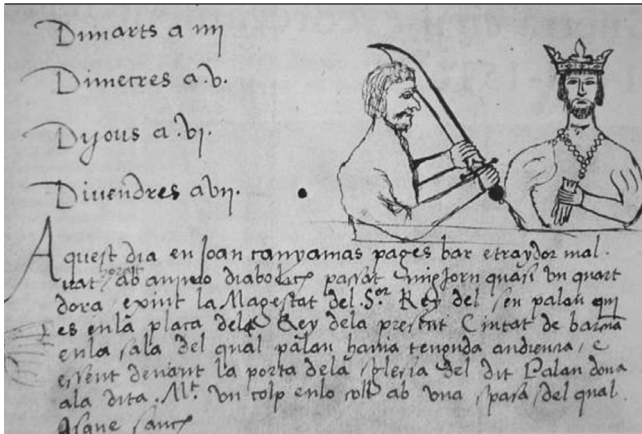 Dimarts a iiii
Dimecres a .v.
Dijous a .vi.
Divendres a vii.
Aquest dia en Joan canyamas pages bar e traydor mal
vat ab animo diabolich passat mig jorn quasi un quart
dora, exint la Magestat del S.or Rey del seu palau qui
es en la plaça del Rey dela present Ciutat de barña
enla sala del qual palau havia tenguda audiencia, e
essent devant la porta dela Iglesia del dit Palau dona
ala dita .Mt. un colp enlo coll ab una spasa del qual